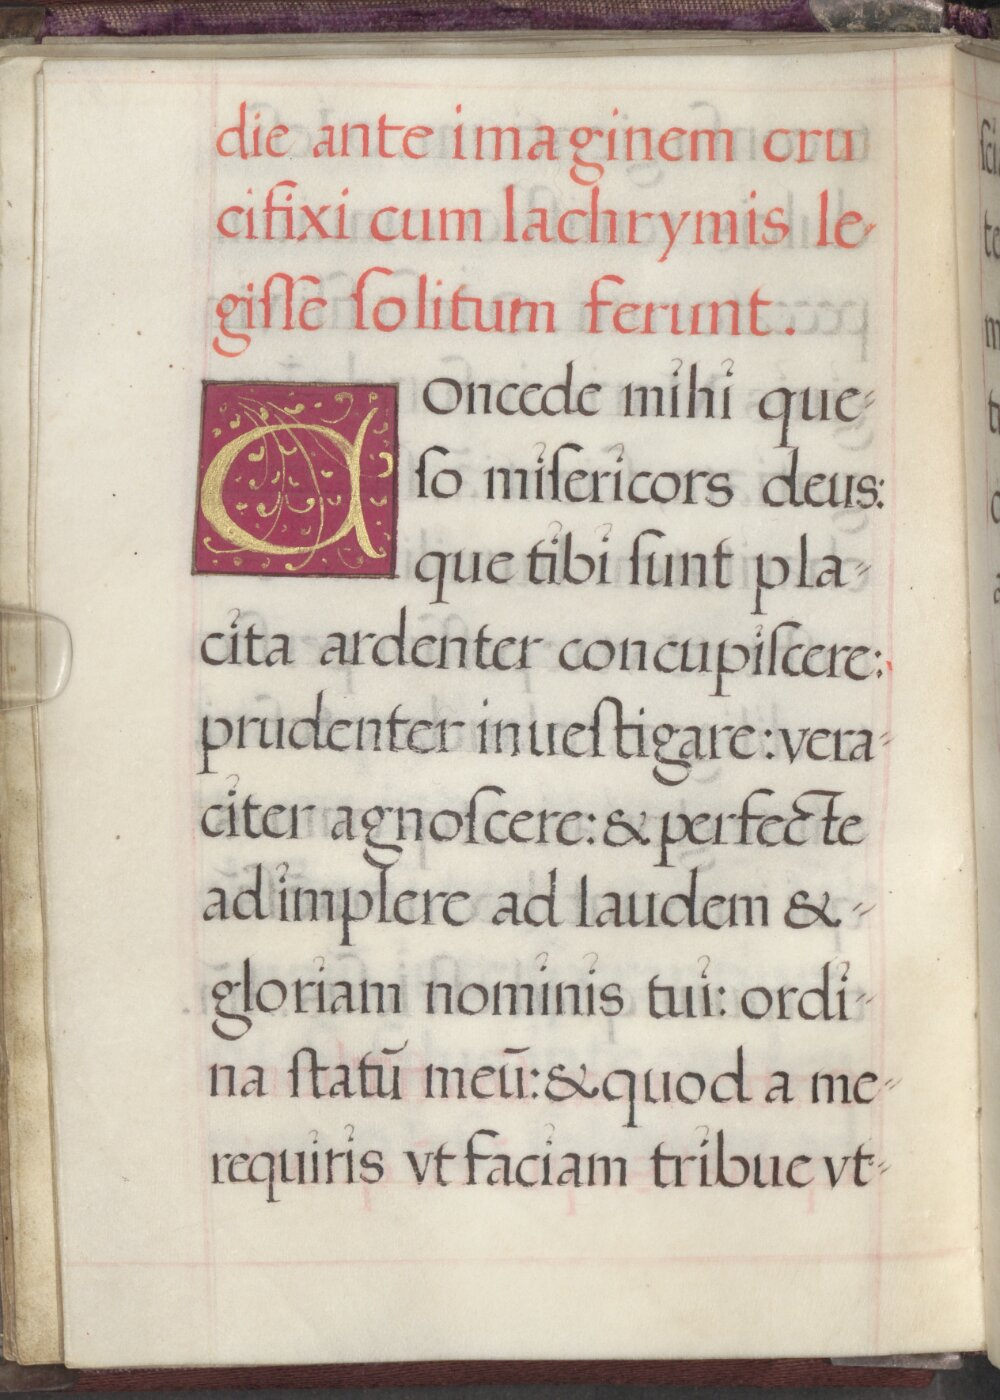 die ante imaginem cru
cifixi cum lachrymis le-
giſſe ſolitum ferunt.
Concede mihi que-
ſo miſericors deus:
que tibi ſunt pla-
cita ardenter concupiſcere:
prudenter inueſtigare: vera-
citer agnoſcere: & perfecte
adimplere ad laudem &-
gloriam nominis tui: ordi-
na ſtatū meū: & quod a me-
requiris vt faciam tribue vt-